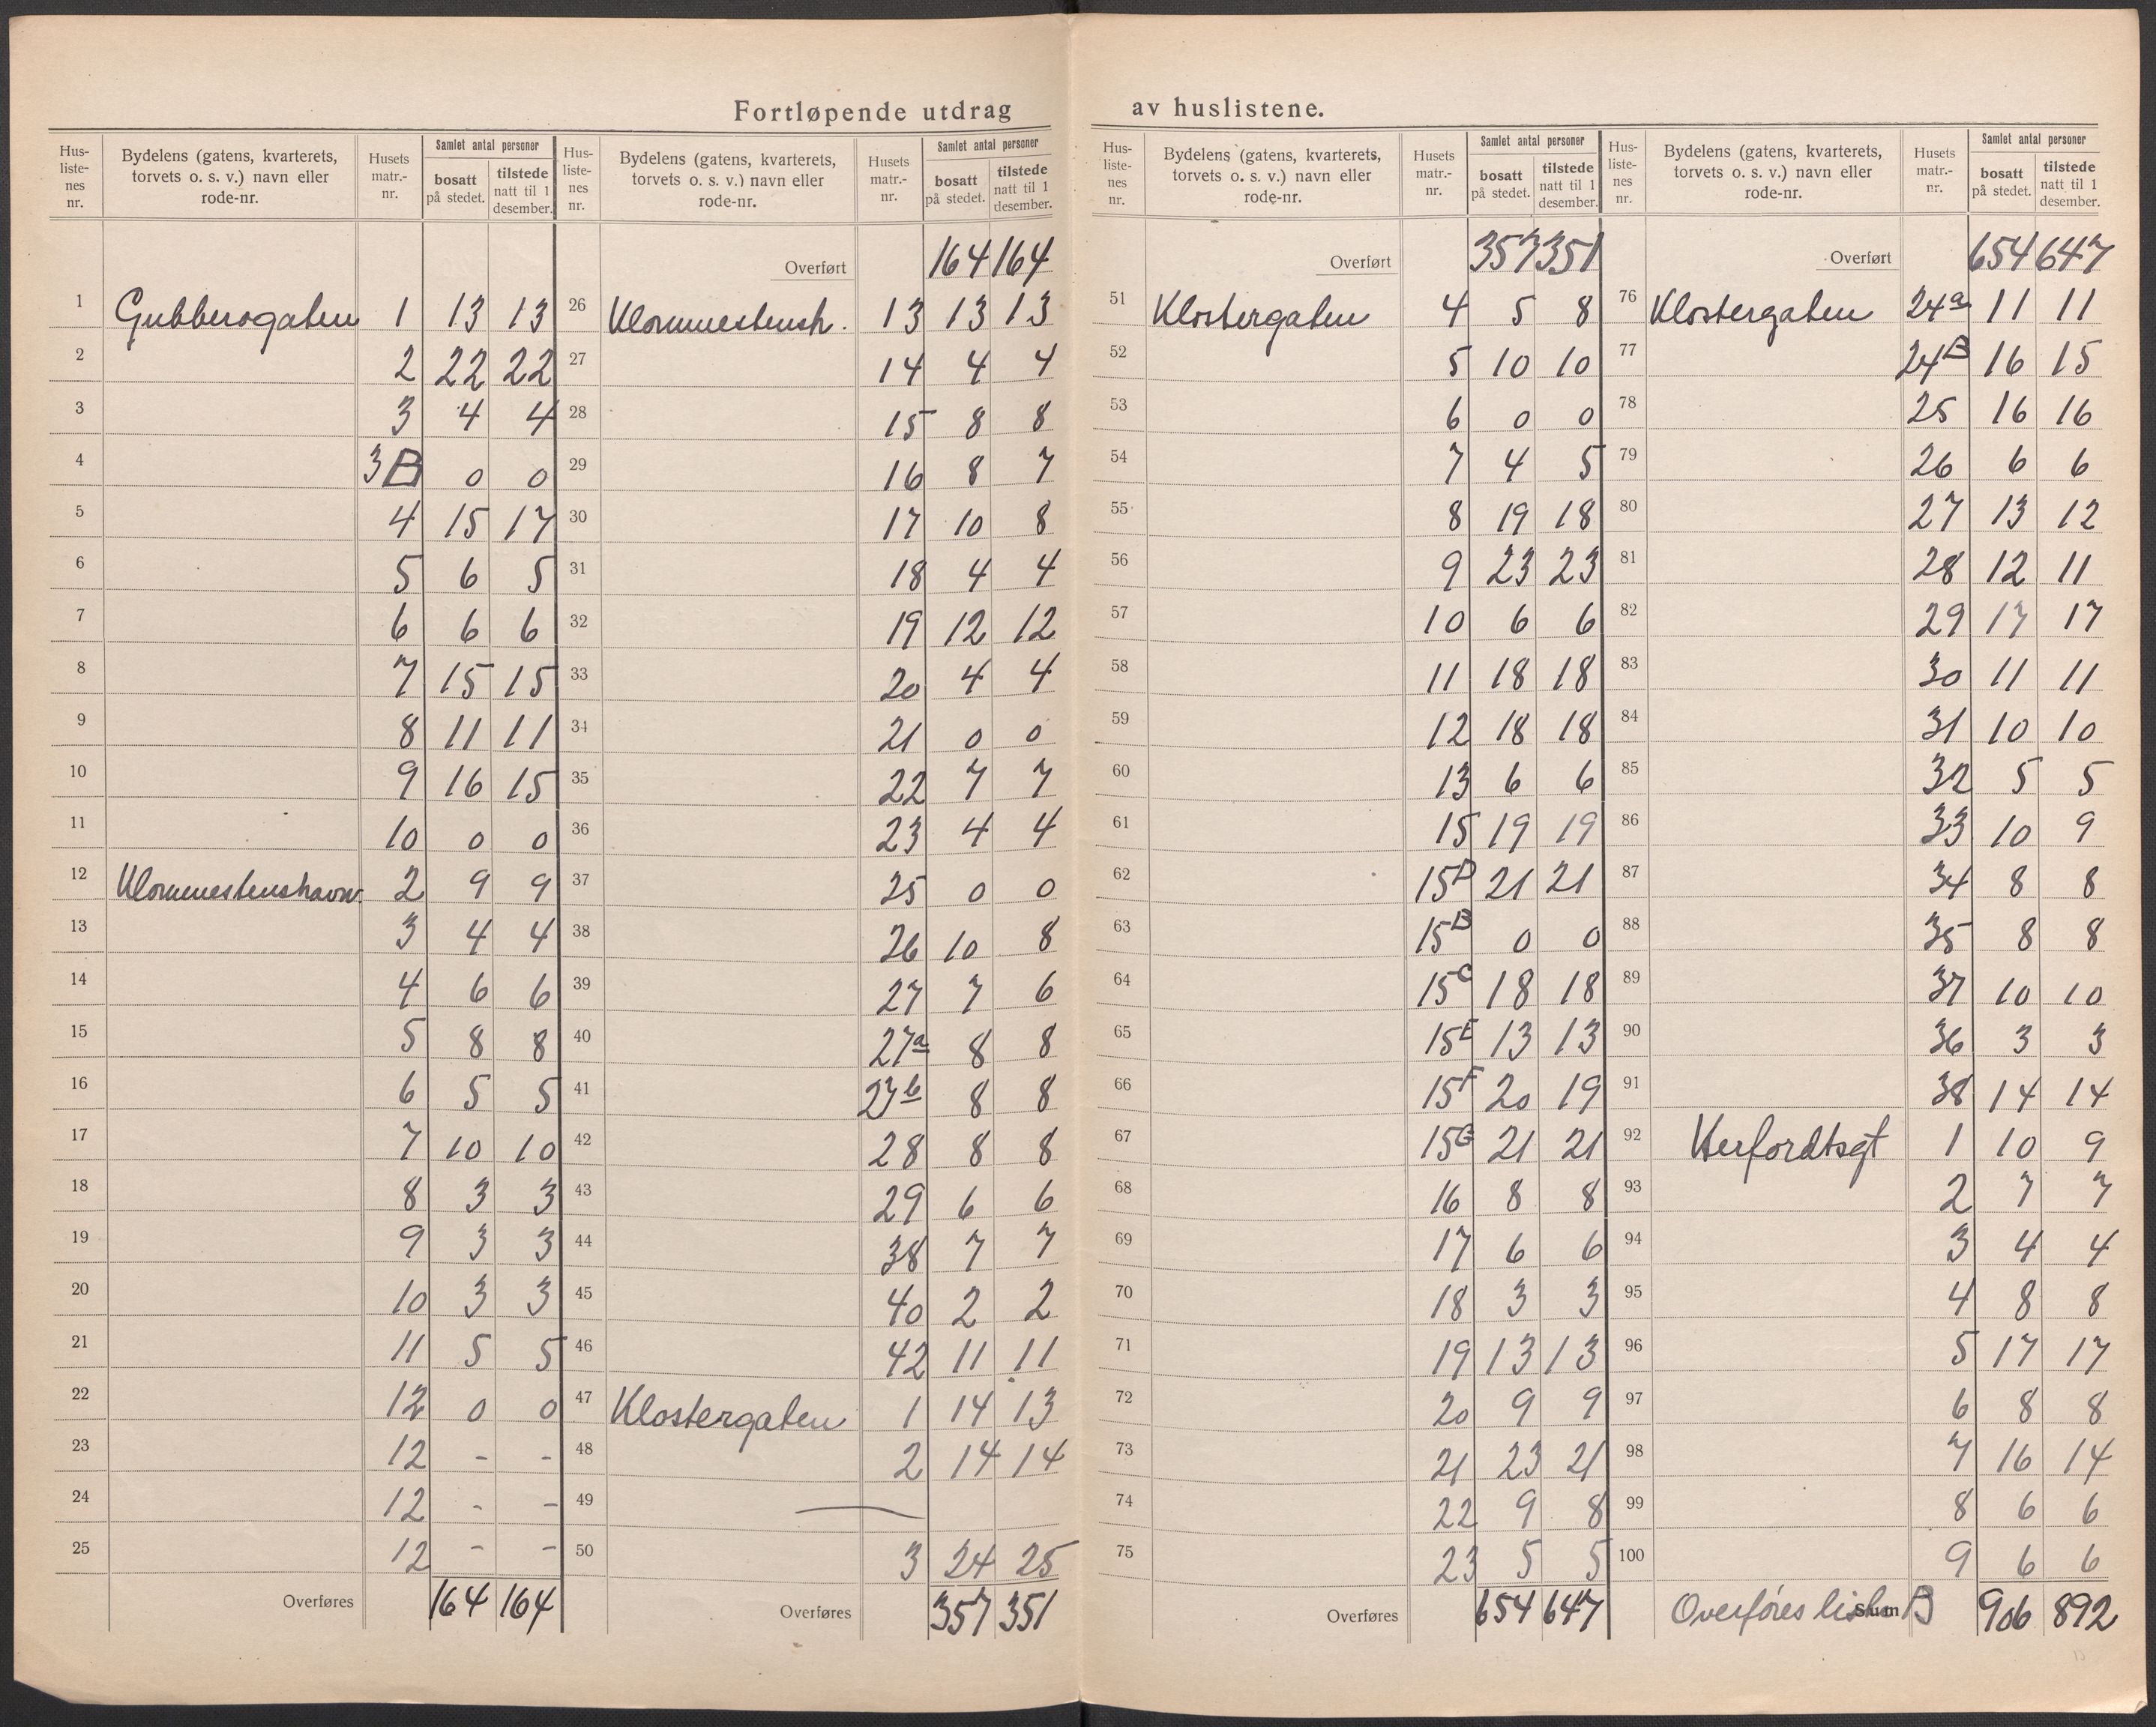 Fortløpende utdrag av huslistene.
Hus-liste-nes nr. | Bydelens (gatens, kvarterets, torvets o. s. v.) navn eller rode-nr. | Husets matr.-nr. | Samlet antal personer | bosatt på stedet. | tilstede natt til 1 desember.
1 Gubberogaten 1 13 13
2 2 22 22
3 3 4 4
4 3B 0 0
5 4 15 17
6 5 6 5
7 6 6 6
8 7 15 15
9 8 11 11
10 9 16 15
11 10 0 0
12 Klommestenshavn. 2 9 9
13 3 4 4
14 4 6 6
15 5 8 8
16 6 5 5
17 7 10 10
18 8 3 3
19 9 3 3
20 10 3 3
21 11 5 5
22 12 0 0
23 12 - -
24 12 - -
25 12 - -
Overføres 164 164
Hus-liste-nes nr. | Bydelens (gatens, kvarterets, torvets o. s. v.) navn eller rode-nr. | Husets matr.-nr. | Samlet antal personer | bosatt på stedet. | tilstede natt til 1 desember.
Overført 164 164
26 Klommestensh. 13 13 13
27 14 4 4
28 15 8 8
29 16 8 7
30 17 10 8
31 18 4 4
32 19 12 12
33 20 4 4
34 21 0 0
35 22 7 7
36 23 4 4
37 25 0 0
38 26 10 8
39 27 7 6
40 27a 8 8
41 27b 8 8
42 28 8 8
43 29 6 6
44 38 7 7
45 40 2 2
46 42 11 11
47 Klostergaten 1 14 13
48 2 14 14
49 —
50 3 24 25
Overføres 357 351
Hus-liste-nes nr. | Bydelens (gatens, kvarterets, torvets o. s. v.) navn eller rode-nr. | Husets matr.-nr. | Samlet antal personer | bosatt på stedet. | tilstede natt til 1 desember.
Overført 357 351
51 Klostergaten 4 5 8
52 5 10 10
53 6 0 0
54 7 4 5
55 8 19 18
56 9 23 23
57 10 6 6
58 11 18 18
59 12 18 18
60 13 6 6
61 15 19 19
62 15D 21 21
63 15B 0 0
64 15C 18 18
65 15E 13 13
66 15F 20 19
67 15G 21 21
68 16 8 8
69 17 6 6
70 18 3 3
71 19 13 13
72 20 9 9
73 21 23 21
74 22 9 8
75 23 5 5
Overføres 654 647
Hus-liste-nes nr. | Bydelens (gatens, kvarterets, torvets o. s. v.) navn eller rode-nr. | Husets matr.-nr. | Samlet antal personer | bosatt på stedet. | tilstede natt til 1 desember.
Overført 654 647
76 Klostergaten 24a 11 11
77 24B 16 15
78 25 16 16
79 26 6 6
80 27 13 12
81 28 12 11
82 29 17 17
83 30 11 11
84 31 10 10
85 32 5 5
86 33 10 9
87 34 8 8
88 35 8 8
89 37 10 10
90 36 3 3
91 38 14 14
92 Herfordtsgt 1 10 9
93 2 7 7
94 3 4 4
95 4 8 8
96 5 17 17
97 6 8 8
98 7 16 14
99 8 6 6
100 9 6 6
Overføres liste B Sum 906 892